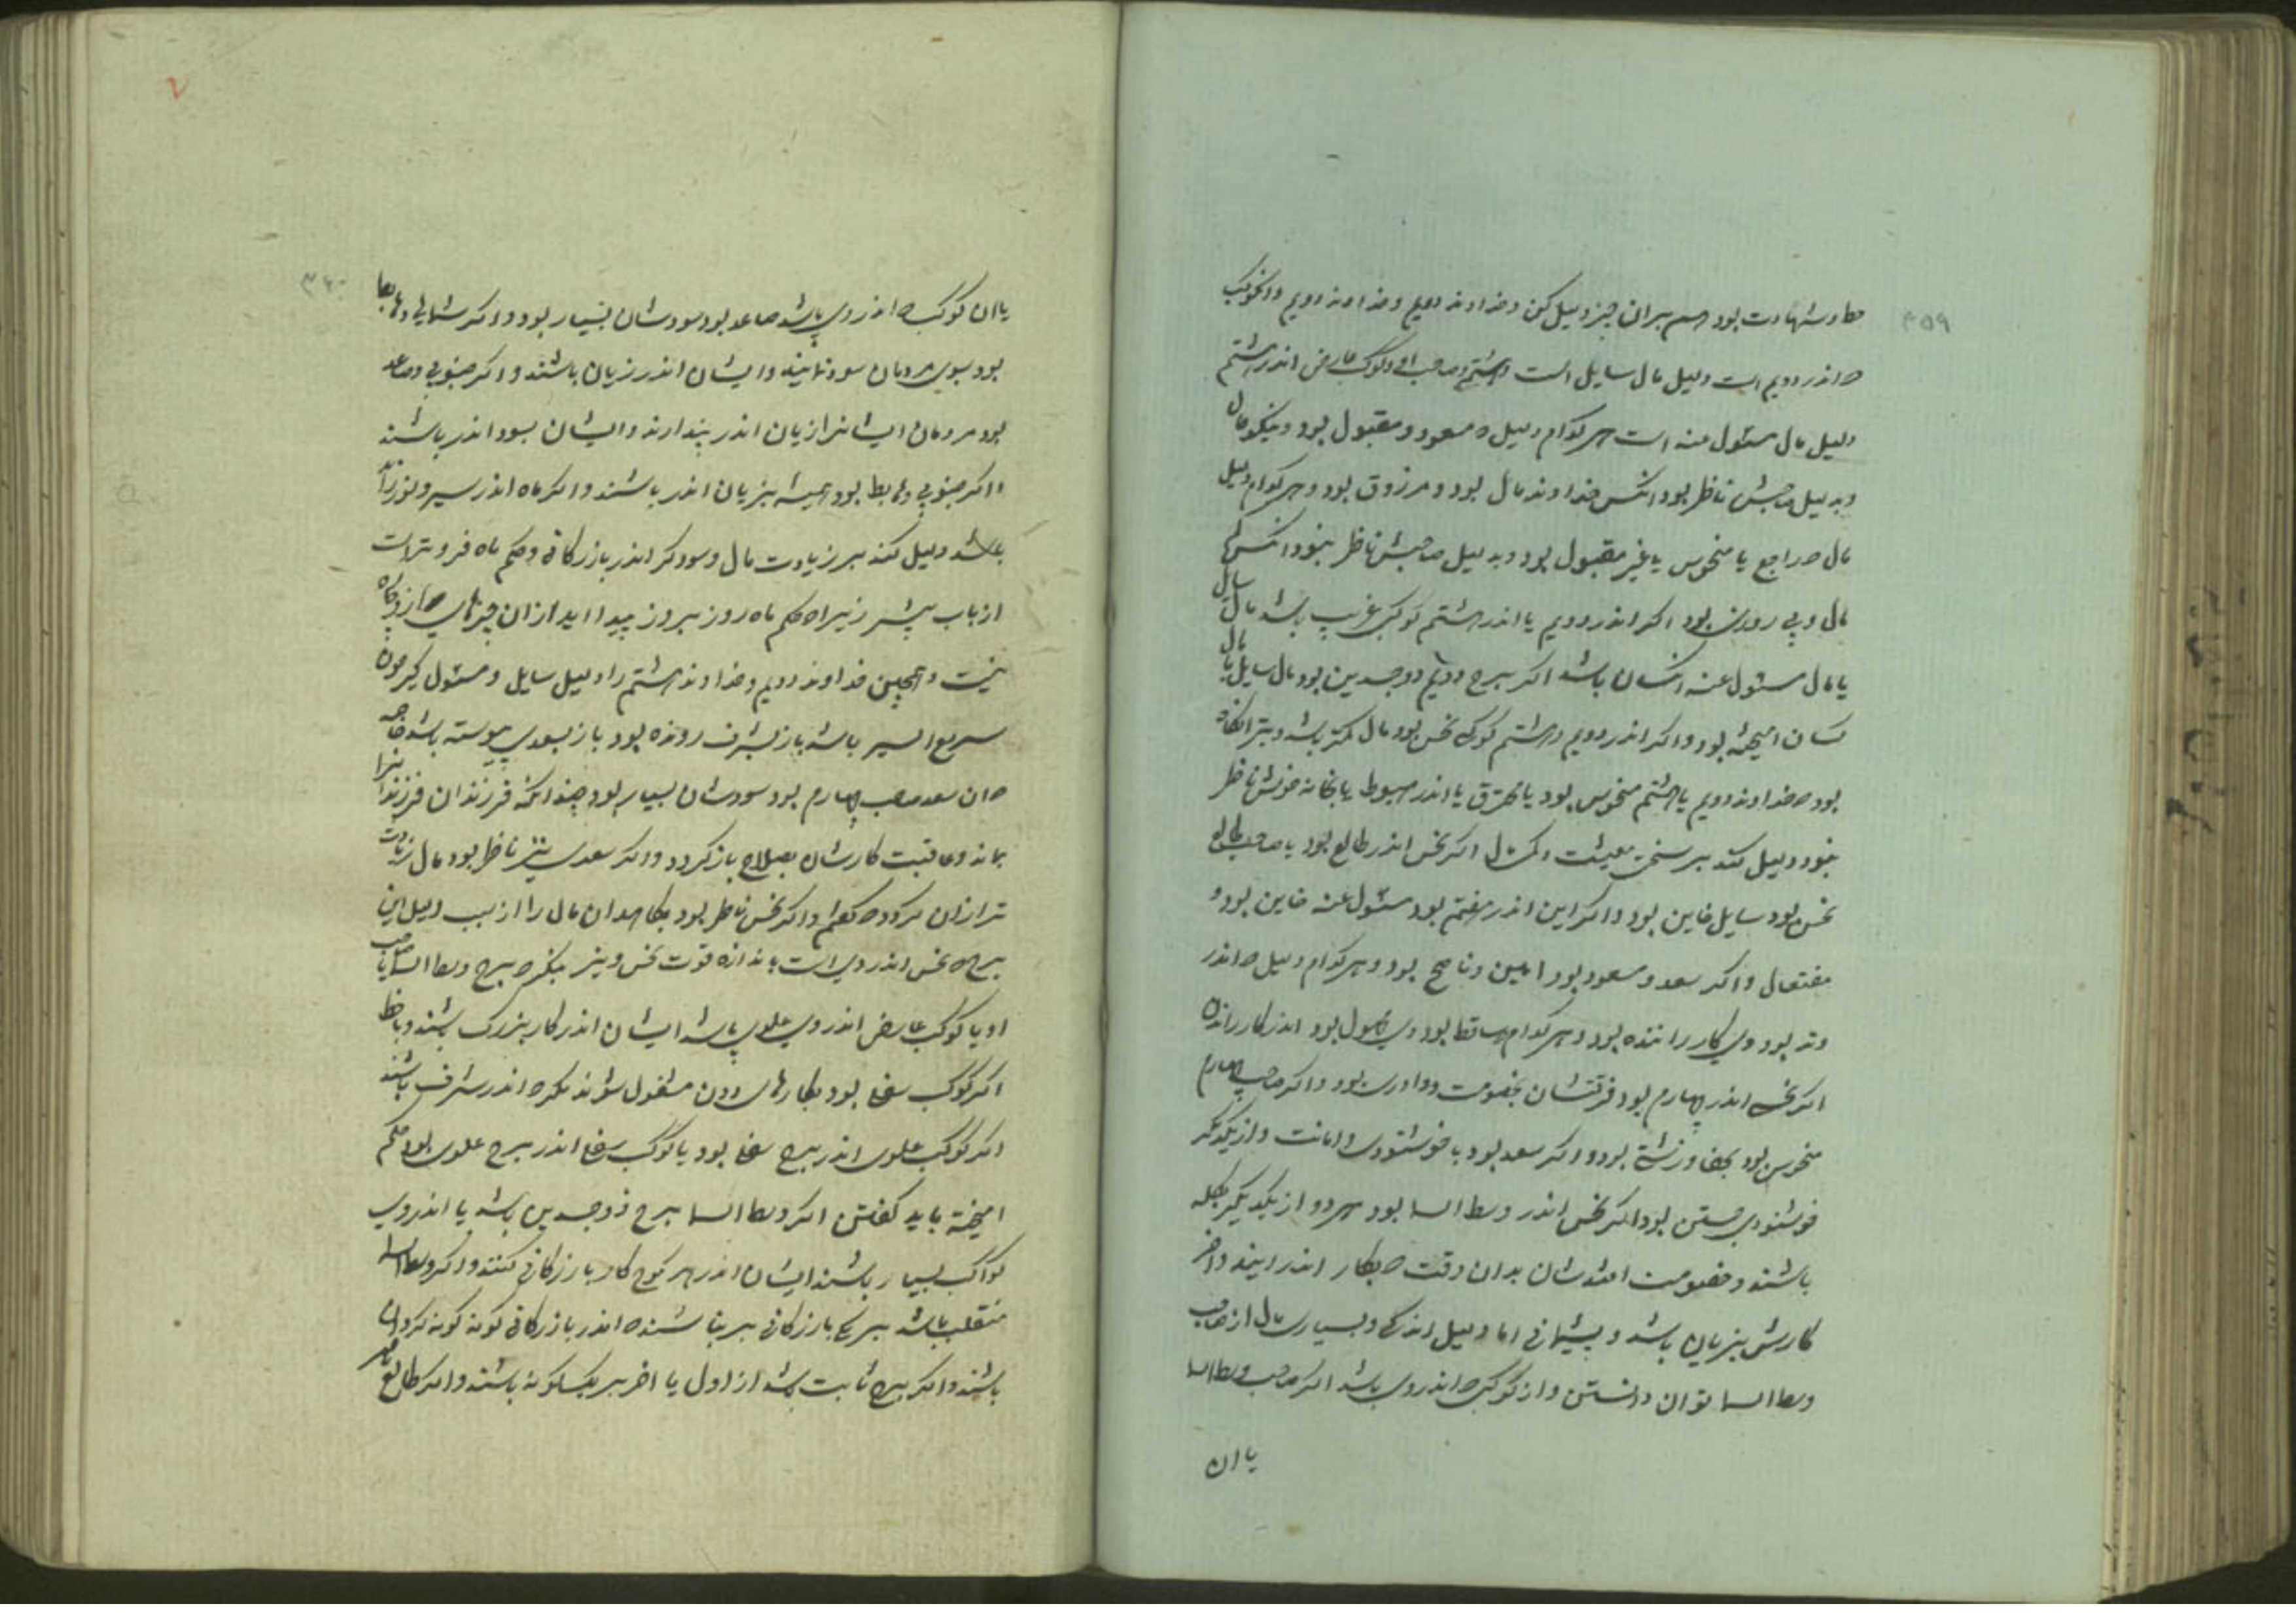 ۳۵۹
خطاو شهادت بود هم بران چیز دلیل کن و خداوند دویم و کوکب
که اندر دویم است دلیل مال سایل است و هشتم و صاحب او و کوکب عارض اندر هشتم
دلیل مال مسئول عنه است هر کدام دلیل که مسعود و مقبول بود و نیکو حال
و بدلیل صاحبش ناظر بود انکس خداوند مال بود و مرزوق بود و هر کدام دلیل
مال که راجع یا منحوس یا غیر مقبول بود و بدلیل صاحبش ناظر نبود انکس
مال و بی روزی بود اکر اندر دویم یا اندر هشتم کوکبی غریب باشد مال سایل
یا مال مسئول عنه از کسان باشد اکر برج دویم ذوجسدین بود مال سایل با مال
کسان امیخته بود و اکر اندر دویم و هشتم کوکبی نحس بود مال کمتر باشد و بتر انکاه
بود که خداوند دویم یا هشتم منحوس بود یا محترق یا اندر هبوط یا بخانه خویش ناظر
نبود دلیل کند بر سختی معیشت اکر نحس اندر طالع بود یا صاحب طالع
نحس بود سایل خاین بود و اکر این اندر هفتم بود مسئول عنه خاین بود و
مفتعال و اکر سعد و مسعود بود امین و ناصح بود و هر کدام دلیل که اندر
وتد بود وی کار راننده بود و هر کدام ساقط بود وی کسول بود اندر کار راندن
اکر نحس اندر چهارم بود فرقتشان بخصومت و داوری بود و اکر صاحب چهارم
منحوس بود بجفا و زشتی بود و اکر سعد بود بخوشنودی و امانت و از یکدیکر
خوشنودی جستن بود اکر نحس اندر وسط السما بود هر دو از یکدیکر بکله
باشند و خصومت افتدشان بدان وقت که بکار اندر ایند و اخر
کارشان بزیان باشد و پشیمانی اما دلیل اندکی و بسیاری مال از صاحب
وسط السما توان دانستن و از کوکبی که اندر وی باشد اکر صاحب وسط السما
یا ان
۷
۳۶۰
یا ان کوکب که اندر وی باشد صاعد بود سودشان بسیار بود و اکر شمالی و هابط
بود بسوی مردمان سود نمایند و ایشان اندر زیان باشند و اکر جنوبی و صاعد
بود مردمان ایشانرا زیان اندر پندارند و ایشان بسود اندر باشند
و اکر جنوبی و هابط بود همیشه بزیان اندر باشند و اکر ماه اندر سیر و نور زاید
باشد دلیل کند بر زیادت مال و سود کر اندر بازرکانی و حکم ماه فروتر است
از باب پیشتر زیرا که حکم ماه روز بروز پیدا اید از ان چیزهای
نیست و همچنین خداوند دویم و خداوند هشتم را دلیل سایل و مسئول کیر چون
سریع السیر باشد یا بشرف رونده بود یا بسعدی پیوسته باشد خاصه
که ان سعد صاحب چهارم بود سودشان بسیار بود چندانکه فرزندان فرزندانرا
بماند و عاقبت کارشان بصلاح باز کردد و اکر سعدی نیز ناظر بود مال زیادت
تر از ان کردد که کفتم و اکر نحس ناظر بود بکاهد ان مال را از سبب دلیل این
برج که نحس اندر وی است باندازه قوت نحس و نیز بنکر که برج وسط السما یا صاحب
او یا کوکب عارض اندر وی علوی باشد ایشان اندر کار بزرک باشند و با خطر
اکر کوکب سفلی بود بکارهای دون مشغول شوند مکر که اندر شرف باشند
اکر کوکب علوی اندر برج سفلی بود یا کوکب سفلی اندر برج علوی بود حکم
امیخته باید کفتن اکر وسط السما برج ذوجسدین باشد یا اندر وی
کواکب بسیار باشند ایشان اندر هر نوع کار بازرکانی کنند و اکر وسط السما
منقلب باشد بر یک بازرکانی بر نباشند که اندر بازرکانی کونه کونه کردان
باشند و اکر برج ثابت باشد از اول یا اخر بر یک کونه باشند و اکر طالع